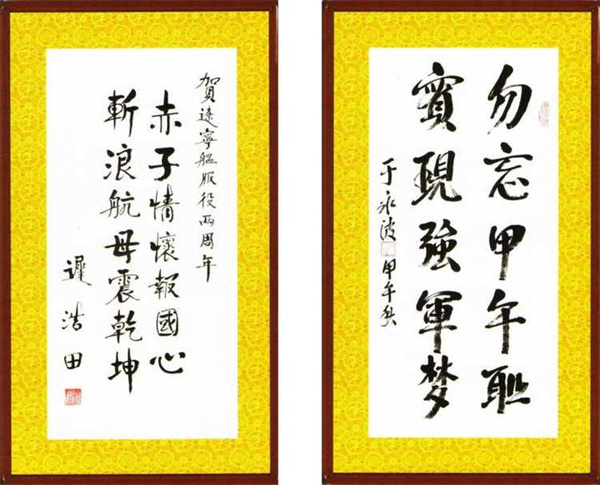 賀遼寧艦服役兩周年
赤子情懷報國心
斬浪航母震乾坤
遲浩田
勿忘甲午耻
實現強軍梦
于永波
甲午秋